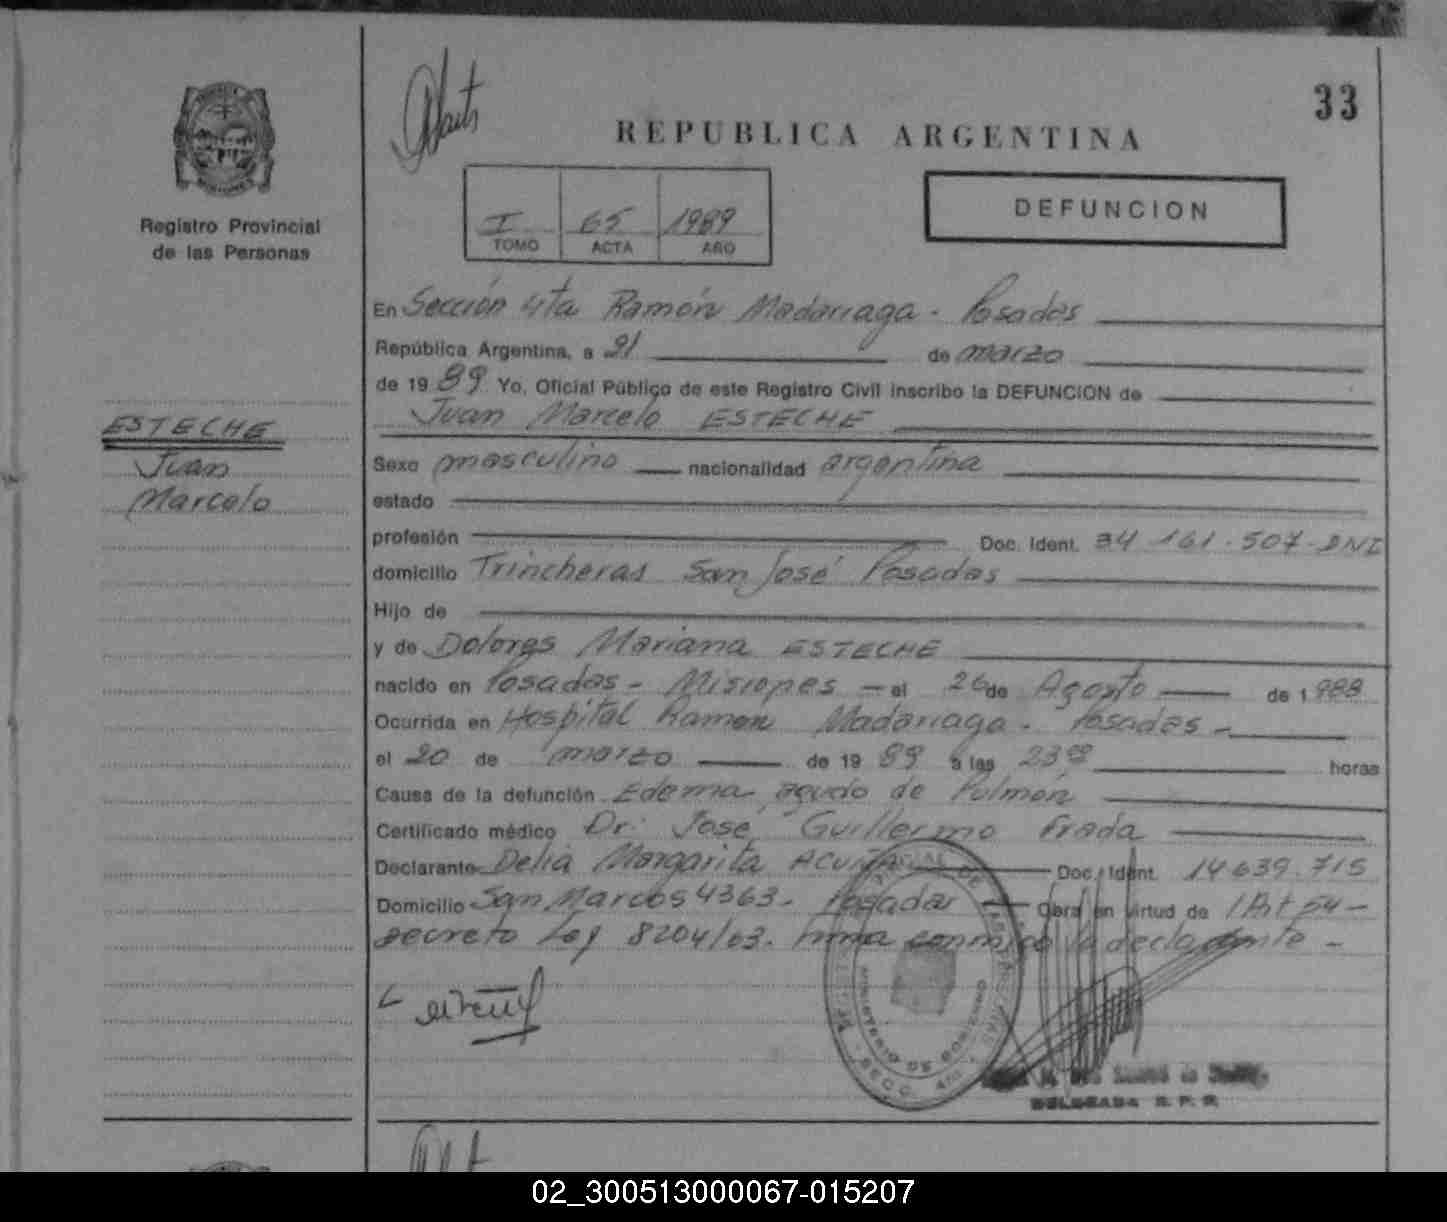 33
REPUBLICA ARGENTINA
I 65 1989
TOMO ACTA AÑO
DEFUNCION
Registro Provincial
de las Personas
ESTECHE
Juan
Marcelo
En Sección 4ta Ramón Madariaga - Posadas
República Argentina, a 21 de marzo
de 19 89 Yo, Oficial Público de este Registro Civil inscribo la DEFUNCION de
Juan Marcelo ESTECHE
Sexo masculino nacionalidad argentina
estado
profesión Doc. Ident. 34.161.507-DNI
domicilio Trincheras San José Posadas
Hijo de
y de Dolores Mariana ESTECHE
nacido en Posadas - Misiones - el 26 de Agosto de 1 988
Ocurrida en Hospital Ramon Madariaga - Posadas -
el 20 de marzo de 19 89 a las 23 horas
Causa de la defunción Edema agudo de Pulmón
Certificado médico Dr. José Guillermo Frada
Declarante Delia Margarita ACUÑA Doc. Ident. 14.639.715
Domicilio San Marcos 4363 - Posadas Obra en virtud de Art 54 -
decreto Ley 8204/63. firma conmigo la declarante -
MINISTERIO DE GOBIERNO
SECC. 4ta
DELEGADA R. P. P.
02_300513000067-015207